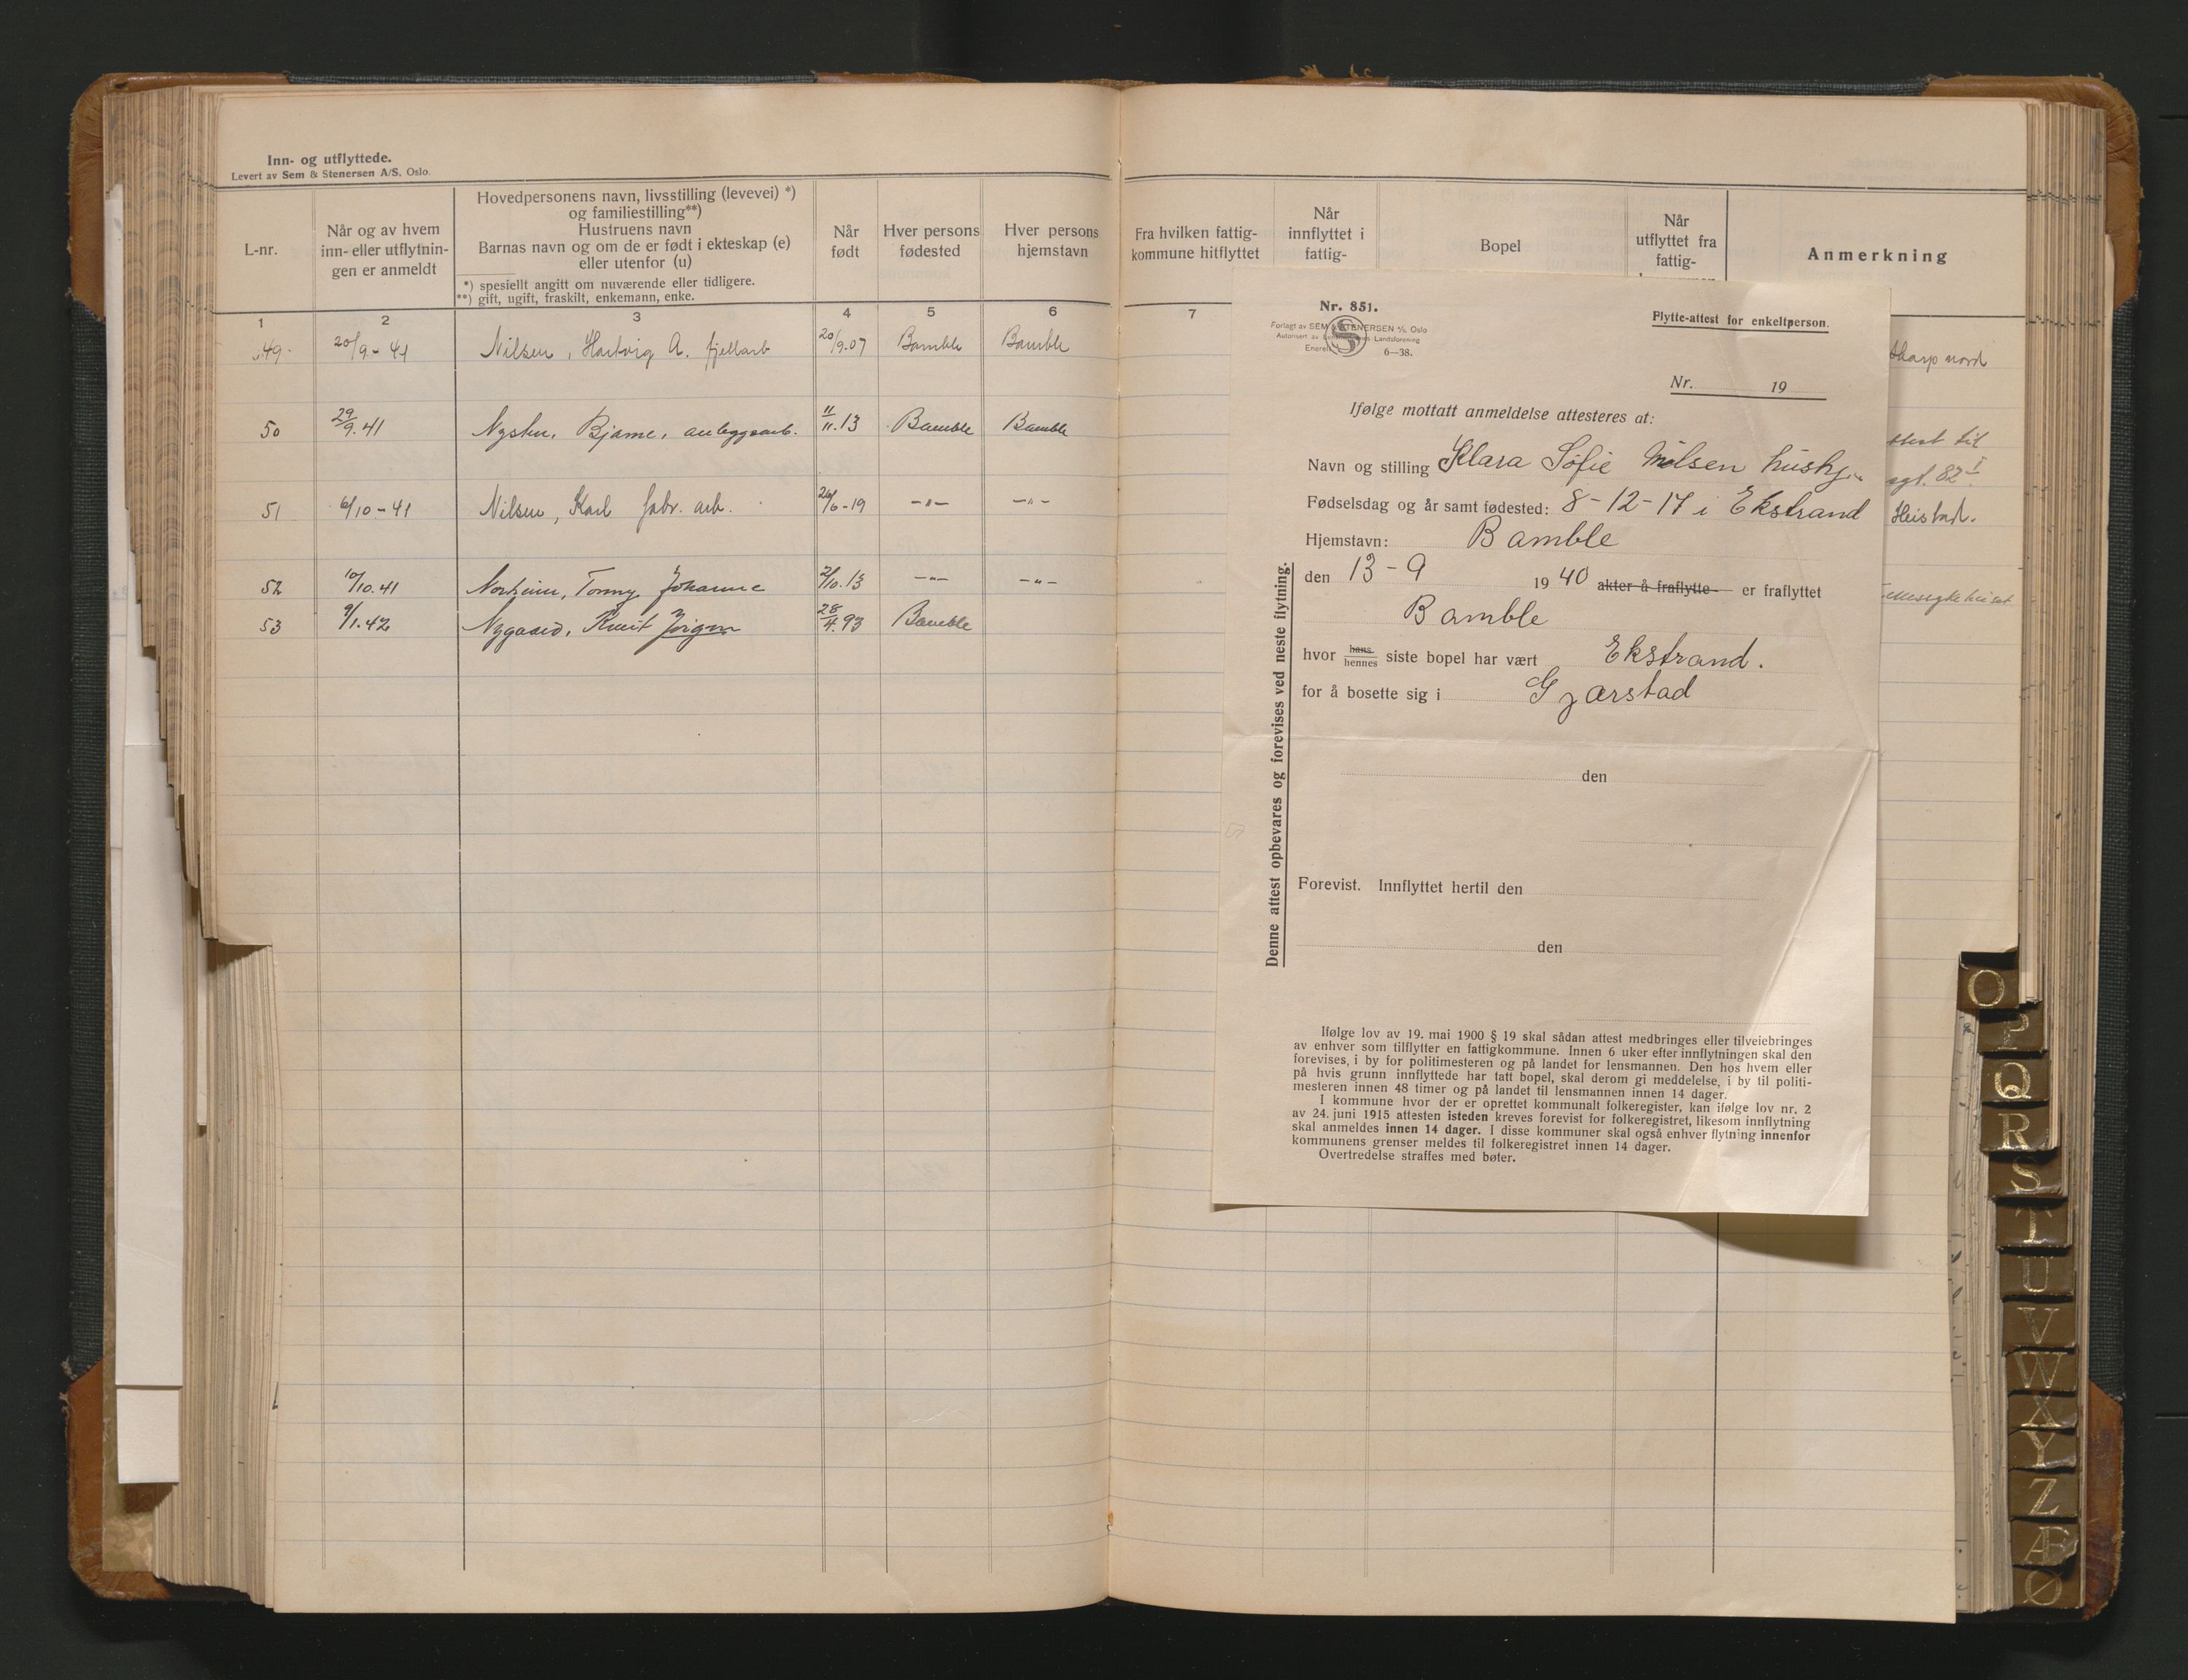 Inn- og utflyttede.
Levert av Sem & Stenersen A/S. Oslo.
L-nr.
Når og av hvem
inn- eller utflytnin-
gen er anmeldt
Hovedpersonens navn, livsstilling (levevei) *)
og familiestilling**)
Hustruens navn
Barnas navn og om de er født i ekteskap (e)
eller utenfor (u)
*) spesiellt angitt om nuværende eller tidligere.
**) gift, ugift, fraskilt, enkemann, enke.
Når
født
Hver persons
fødested
Hver persons
hjemstavn
1 2 3 4 5 6
49 20/9-41 Nilsen, Hartvig A. fjellarb 20/9.07 Bamble Bamble
50 29/9.41 Bjarne, anleggsarb. 11/11.13 Bamble Bamble
51 6/10-41 Nilsen, Karl fabr. arb. 26/6-19 -"- -"-
52 10/10.41 Norheim, Tonny Johanne 2/10.13 -"- -"-
53 9/1.42 Nygaard, Knut Jørgen 28/4.93 Bamble
Fra hvilken fattig-
kommune hitflyttet
Når
innflyttet i
fattig-
Bopel
Når
utflyttet fra
fattig-
Anmerkning
7
nord
til
82 I
Heistad.
Nr. 851.
Forlagt av SEM & STENERSEN A/S, Oslo
Autorisert av Landsforening
6—38.
Flytte-attest for enkeltperson.
Nr. 19
Ifølge mottatt anmeldelse attesteres at:
Navn og stilling Klara Sofie Nilsen hushj.
Fødselsdag og år samt fødested: 8-12-17 i Ekstrand
Hjemstavn: Bamble
den 13-9 1940 akter å fraflytte er fraflyttet
Bamble
hvor hans hennes siste bopel har vært Ekstrand.
for å bosette sig i Gjerstad
den
Forevist. Innflyttet hertil den
den
Denne attest opbevares og forevises ved neste flytning.
Ifølge lov av 19. mai 1900 § 19 skal sådan attest medbringes eller tilveiebringes
av enhver som tilflytter en fattigkommune. Innen 6 uker efter innflytningen skal den
forevises, i by for politimesteren og på landet for lensmannen. Den hos hvem eller
på hvis grunn innflyttede har tatt bopel, skal derom gi meddelelse, i by til politi-
mesteren innen 48 timer og på landet til lensmannen innen 14 dager.
I kommune hvor der er oprettet kommunalt folkeregister, kan ifølge lov nr. 2
av 24. juni 1915 attesten isteden kreves forevist for folkeregistret, likesom innflytning
skal anmeldes innen 14 dager. I disse kommuner skal også enhver flytning innenfor
kommunens grenser meldes til folkeregistret innen 14 dager.
Overtredelse straffes med bøter.
O
P
Q
R
S
T
U
V
W
X
Y
Z
Æ
Ø